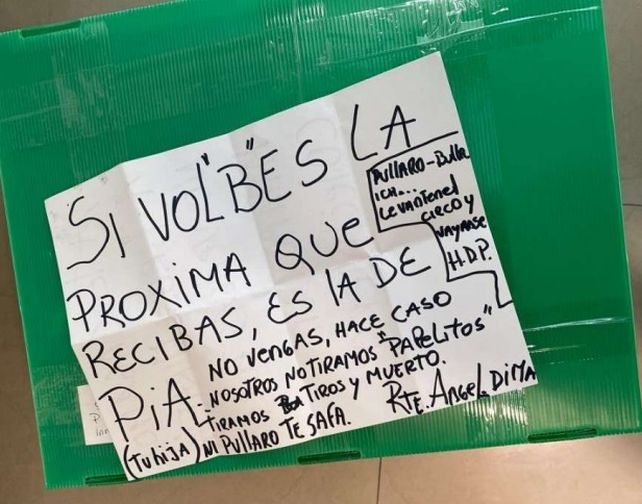 SI VOL"B"ÉS LA
PROXIMA QUE
RECIBAS, ES LA DE
PIA.
(Tu hija)
PULLARO-Bulla
ICH...
Levanten el
CIRCO y
VAYANSE
H.D.P.
NO VENGAS, HACE CASO
NOSOTROS NO TIRAMOS "PAPELITOS"
TIRAMOS TIROS y MUERTO.
NI PULLARO TE SAFA.
RTE. Angel DiMA